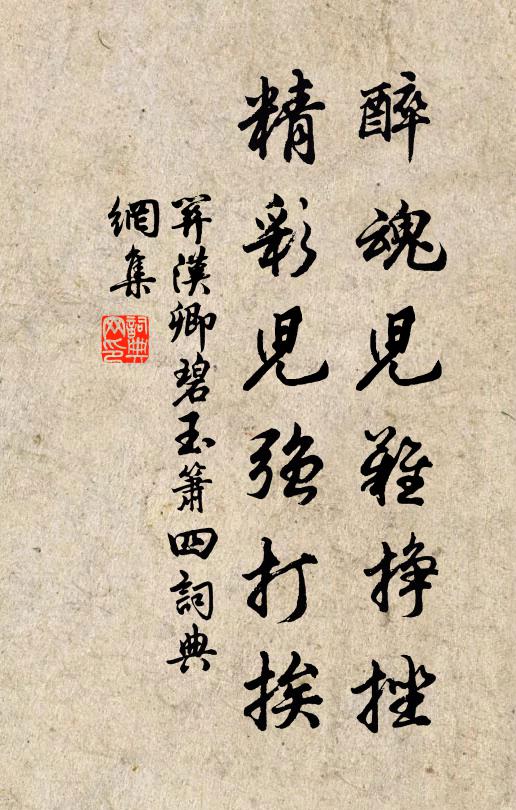 醉魂兒難掙挫
精彩兒強打挨
關漢卿碧玉簫四詞典
網集
詞典網印